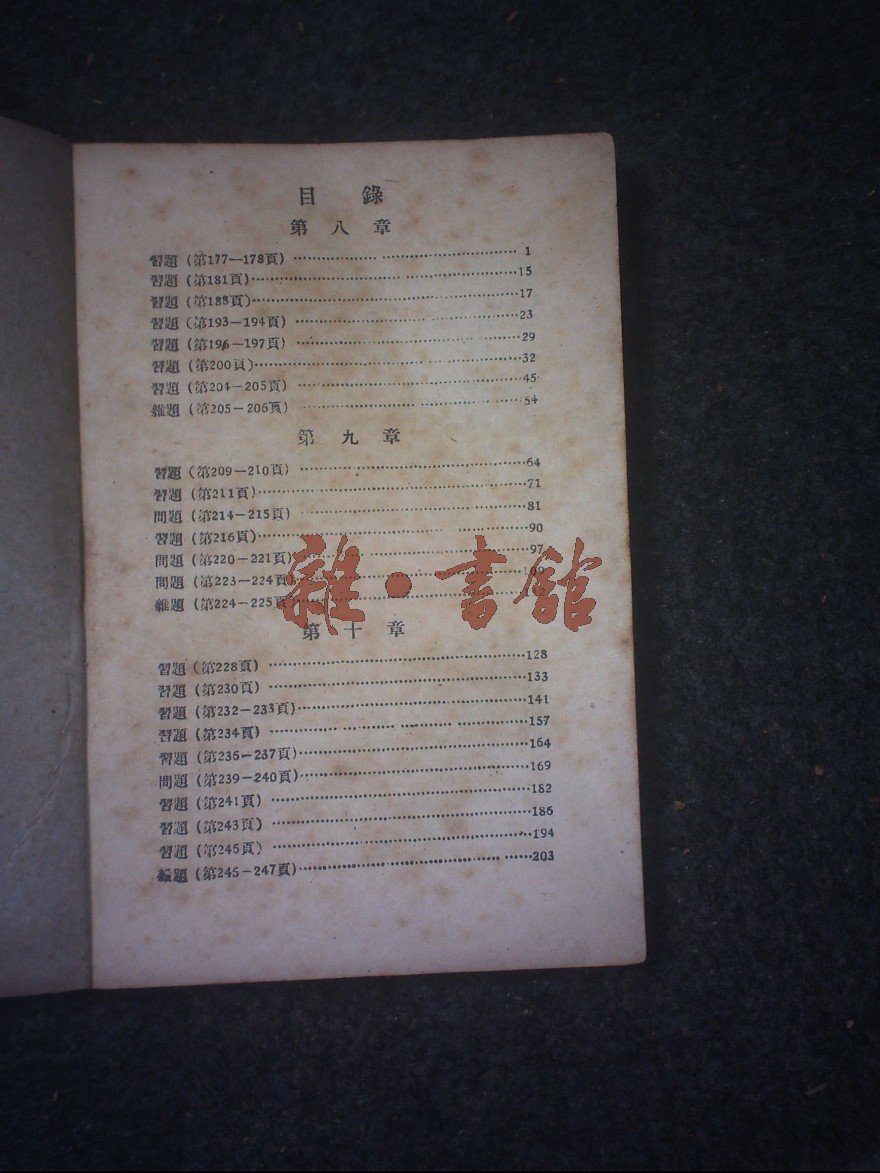 目錄
第八章
習題(第177—178頁) 1
習題(第181頁) 15
習題(第188頁) 17
習題(第193—194頁) 23
習題(第196—197頁) 29
習題(第200頁) 32
習題(第204—205頁) 45
雜題(第205—206頁) 54
第九章
習題(第209—210頁) 64
習題(第211頁) 71
問題(第214—215頁) 81
習題(第216頁) 90
問題(第220—221頁) 97
問題(第223—224頁)
雜題(第224—225頁)
雜·書館
第十章
習題(第228頁) 128
習題(第230頁) 133
習題(第232—233頁) 141
習題(第234頁) 157
習題(第236—237頁) 164
問題(第239—240頁) 169
習題(第241頁) 182
習題(第243頁) 186
習題(第245頁) 194
雜題(第245—247頁) 203